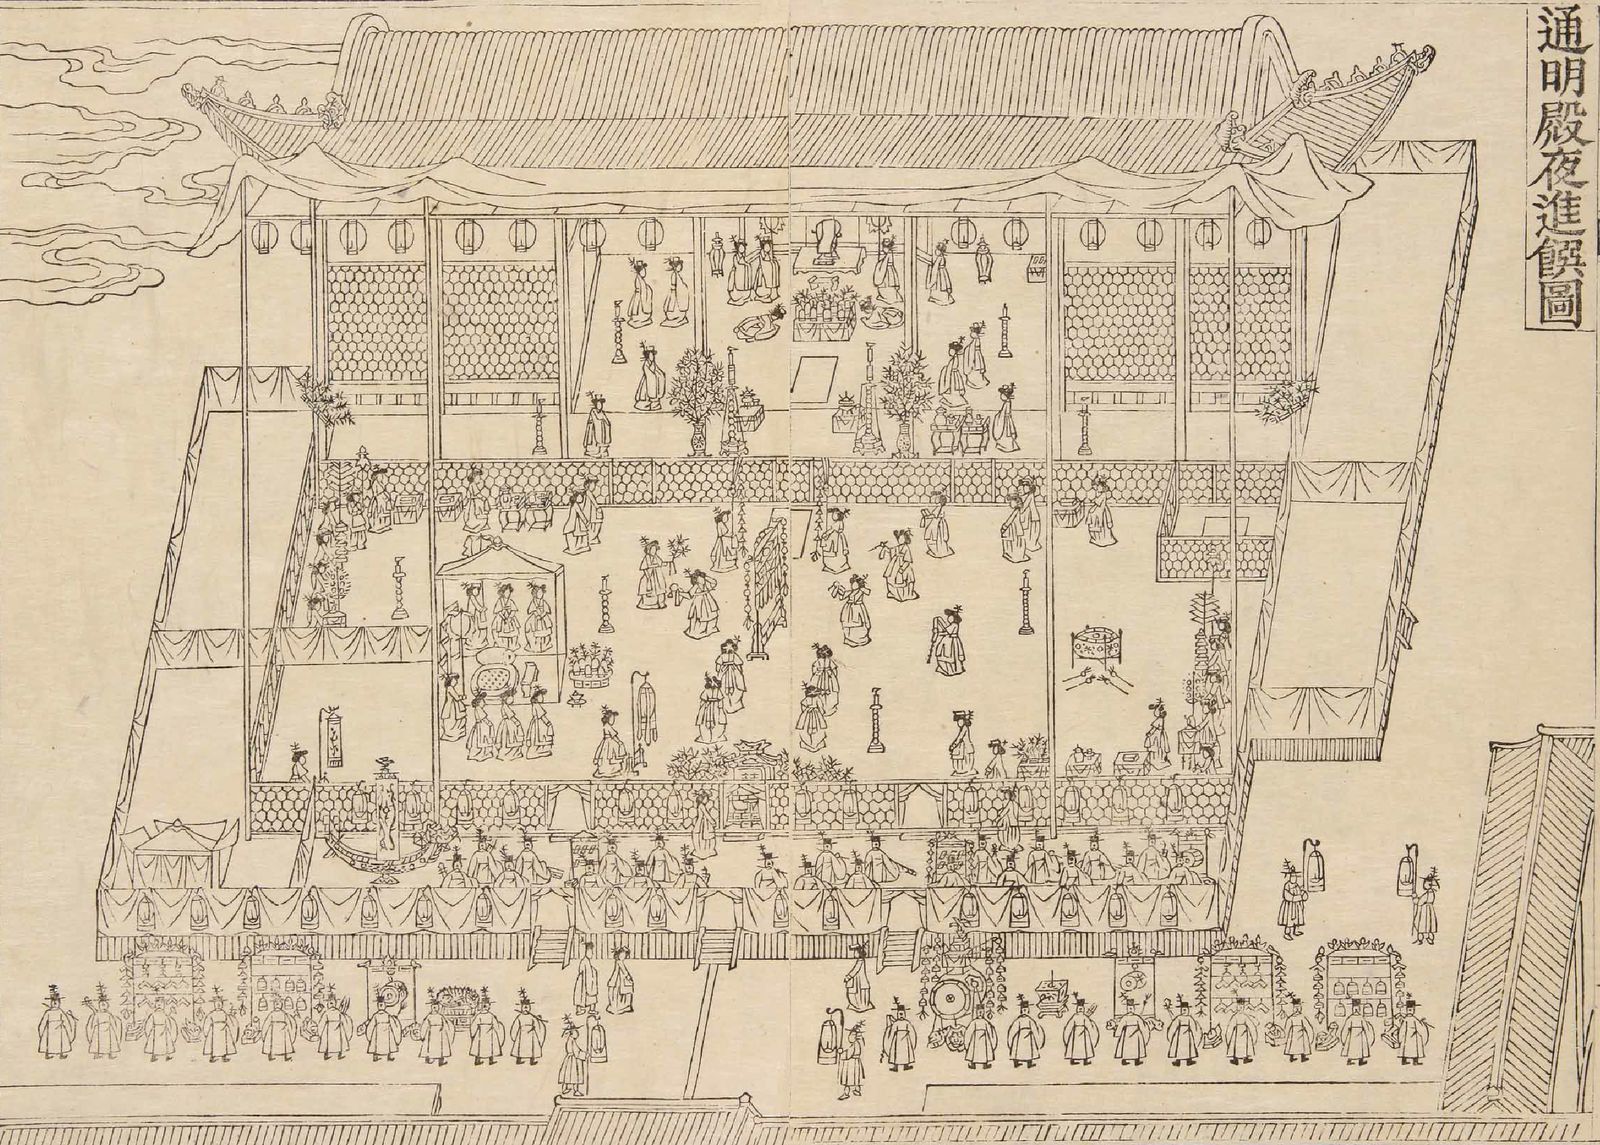 通明殿夜進饌圖